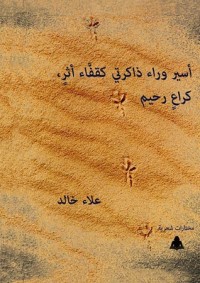 أسير وراء ذاكرتي كقفَّاء أثرٍ،
كراعٍ رحيم
علاء خالد
مختارات شعرية